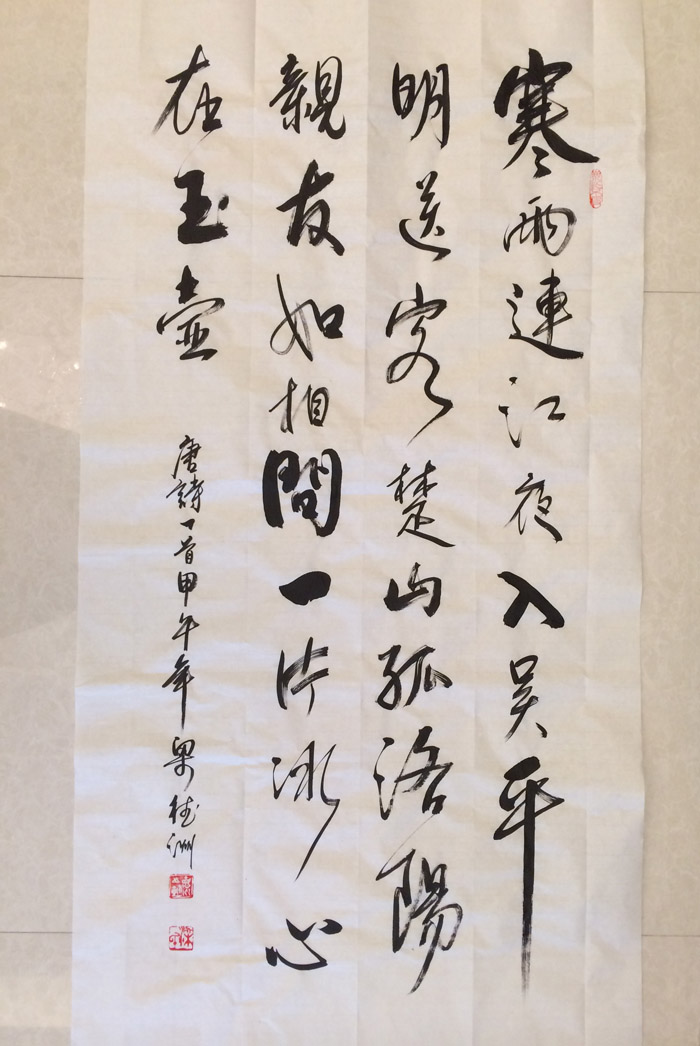 寒雨連江夜入吴平
明送客楚山孤洛陽
親友如相問一片冰心
在玉壶
唐詩一首甲午年梁德洲